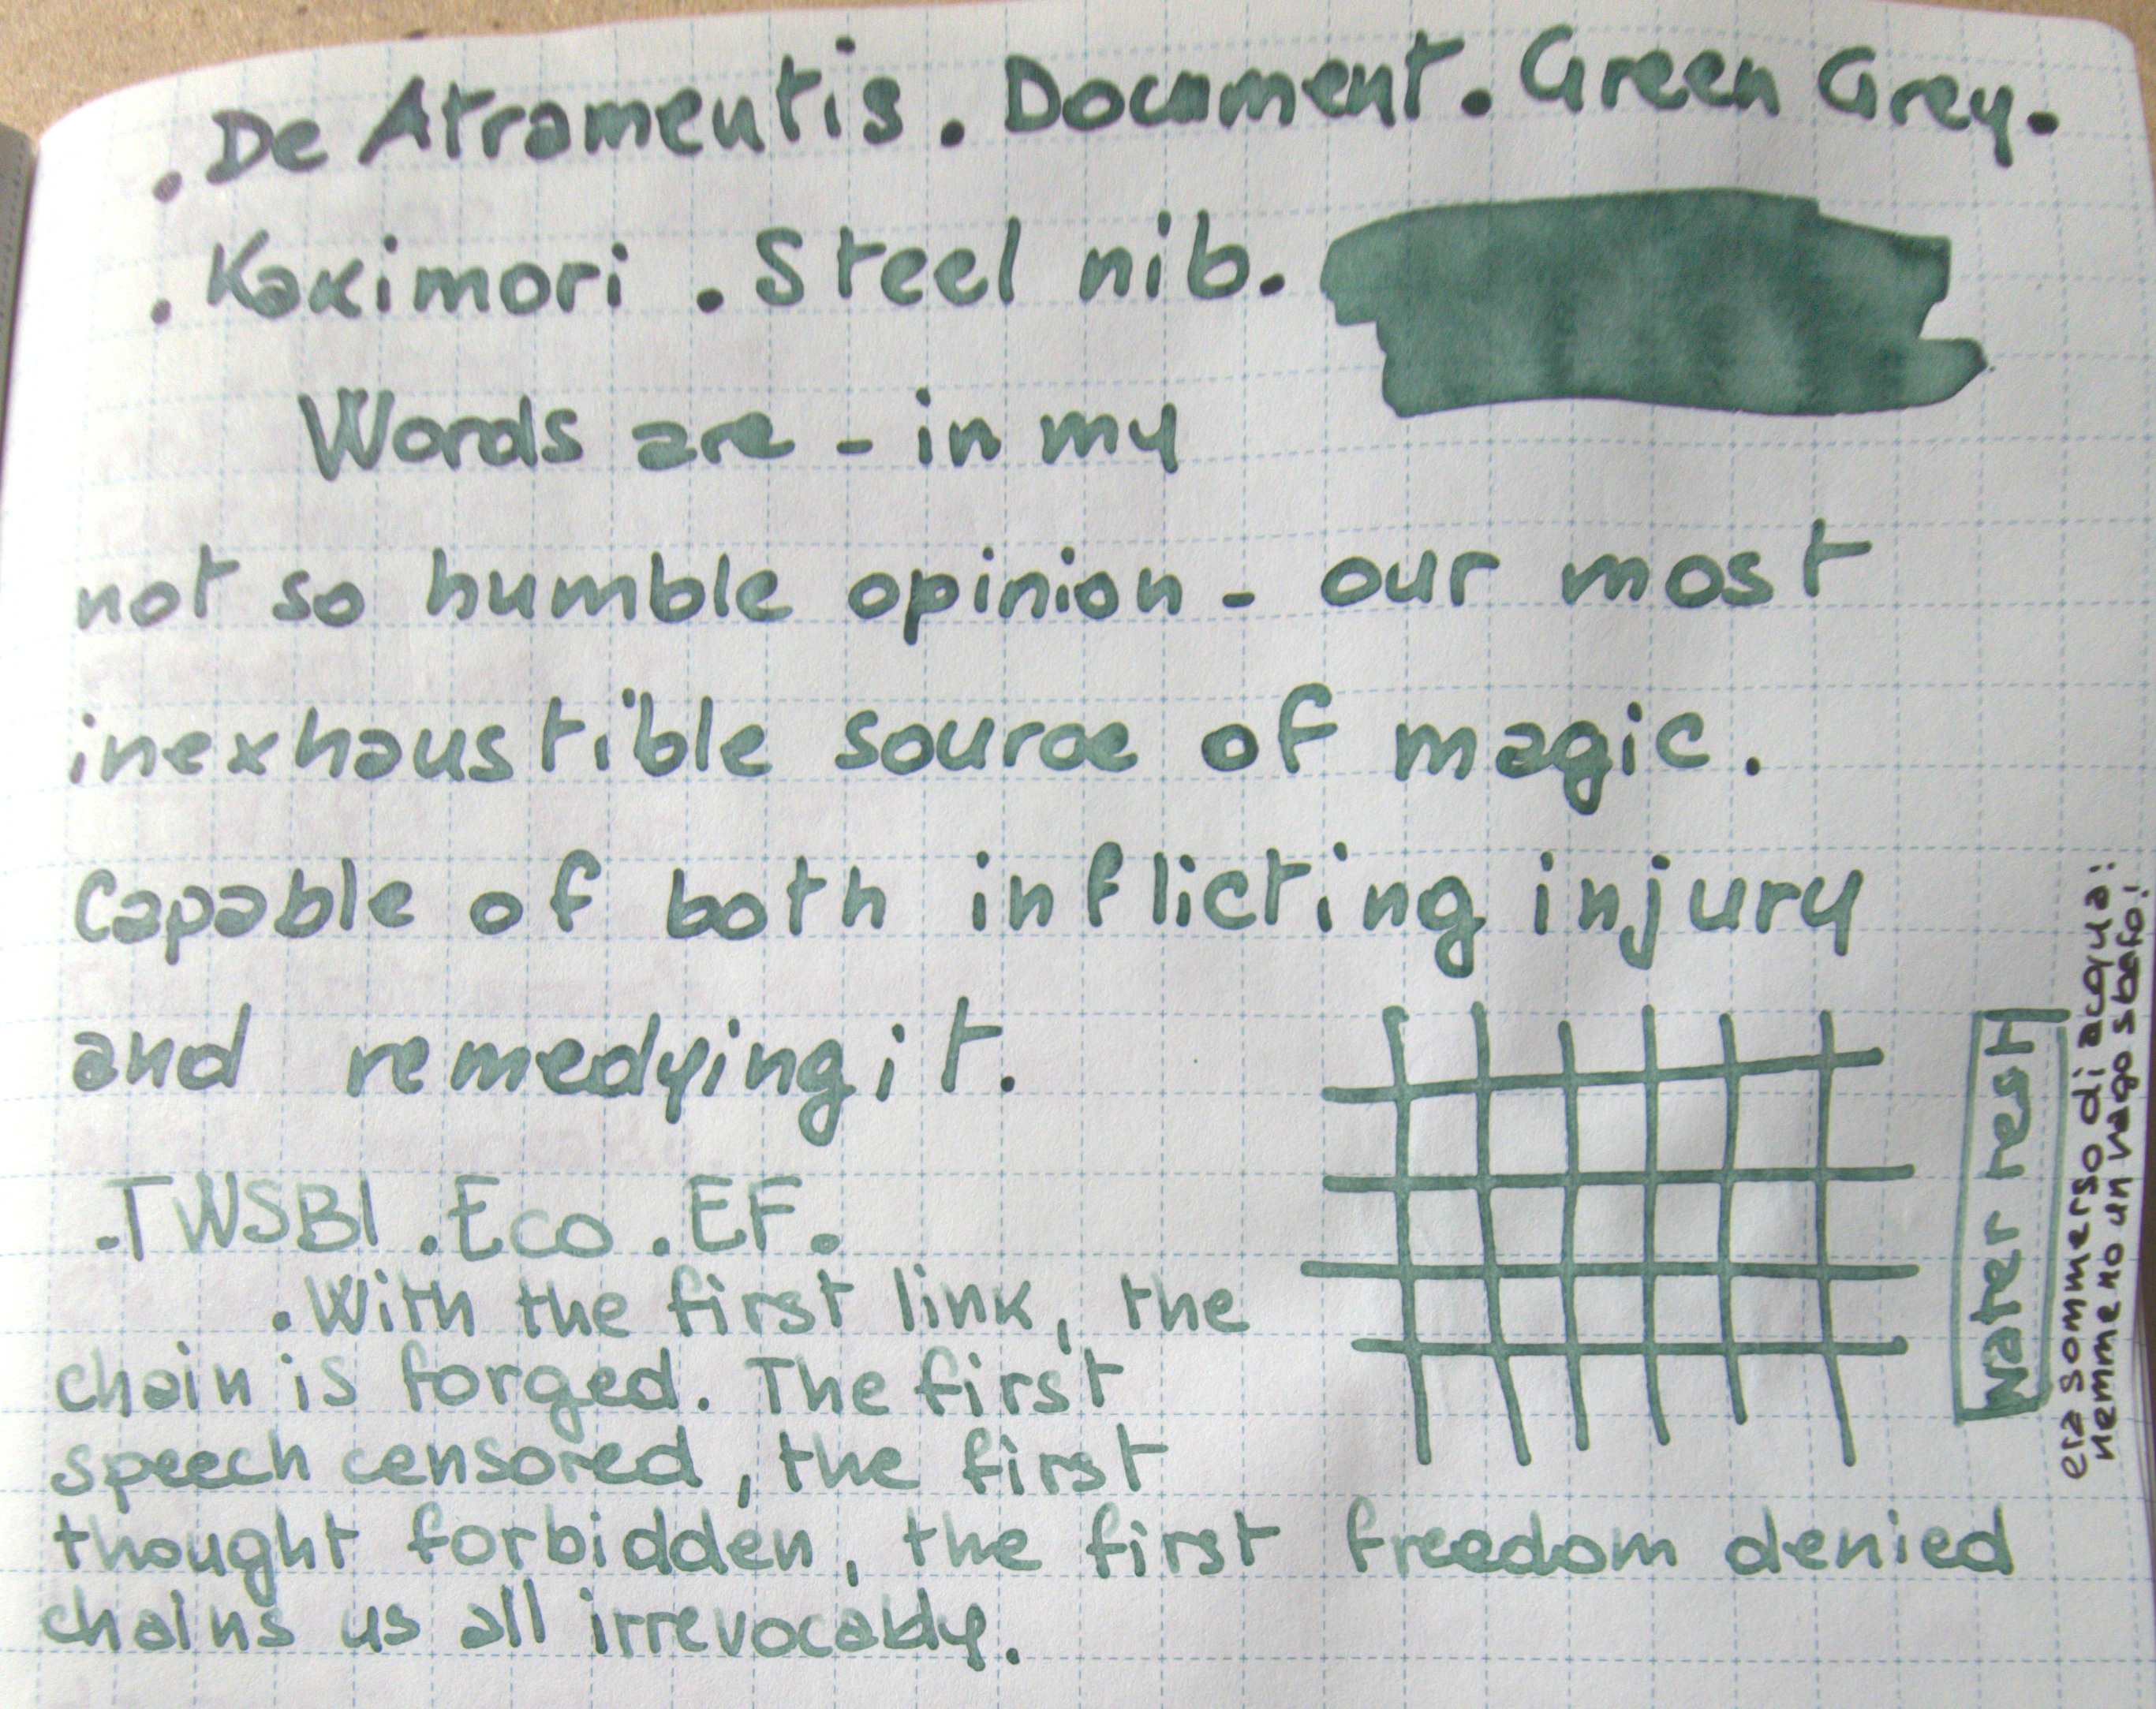 . De Atramentis . Document . Green Grey .
. Kakimori . Steel nib .
Words are - in my
not so humble opinion - our most
inexhaustible source of magic.
Capable of both inflicting injury
and remedying it.
. TWSBI . Eco . EF .
. With the first link, the
chain is forged. The first
speech censored, the first
thought forbidden, the first freedom denied
chains us all irrevocably.
Water test
era sommerso di acqua:
nemmeno un vago sbafo!